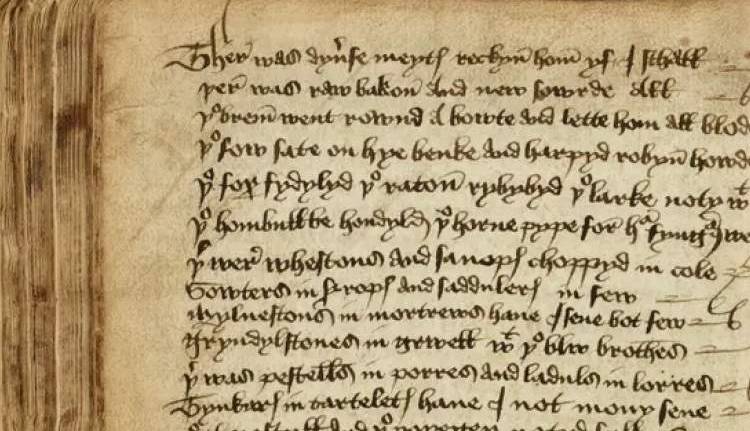 Ther was dyuse meytes rechyn hom yf I schall
þer was raw bakon and new sowrde all
þe brem went rownd a bowte and lette hom all blod
þe sow sate on hye benke and harpyd robyn howde
þe fox fydylyd þe raton rybybyd þe larke notyd wt
þe hombulbe hondyld þe horne pype for hr fyngurs wer
þer wer whestons and sanops choppyd in cole
Sowters in syrops and saddulers in sew
mylnestons in mortrews haue I sene bot few
Gryndylstones in grwell wt þe blw brothes
þer was pestells in porres and laduls in lorres
Tynkars in tartelets haue I not mony sene